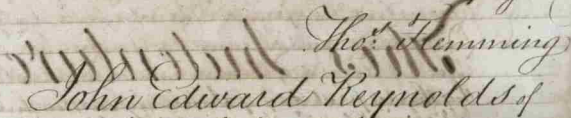 Thos. Flemming
John Edward Reynolds of